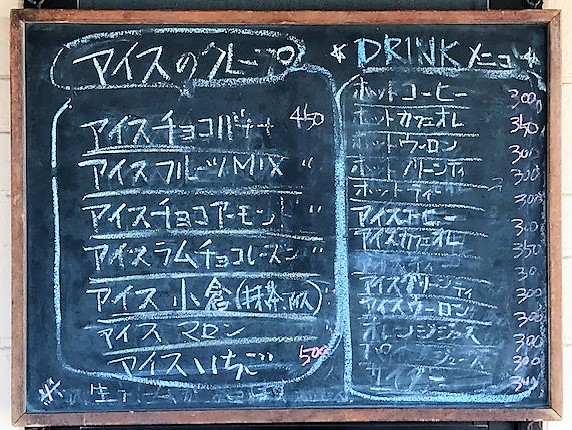 アイスのクレープ
アイスチョコバナナ 450
アイスフルーツMIX 〃
アイスチョコアーモンド 〃
アイスラムチョコレーズン 〃
アイス小倉(抹茶
アイスマロン
アイスいちご 500
※ 生
* DRINKメニュー *
ホットコーヒー 300
ホットカフェオレ 350
ホットウーロン 300
ホットグリーンティ 300
ホットティー 300
アイスコーヒー 300
アイスカフェオレ 350
アイスグリーンティ 300
アイスウーロン 300
オレンジジュース 300
ジュース 300
サイダー 300